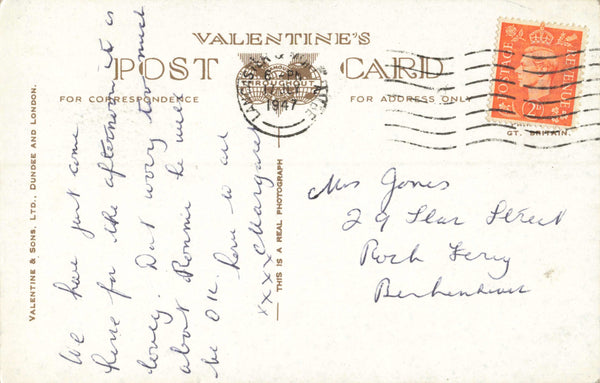 VALENTINE'S
POST CARD
FOR CORRESPONDENCE
FOR ADDRESS ONLY
1947
POSTAGE
REVENUE
2D
GT. BRITAIN.
VALENTINE & SONS, LTD., DUNDEE AND LONDON.
We have just come
here for the afternoon it is
lovely. Dont worry too much
about Ronnie he will
be OK. love to all
xxxx Margaret
THIS IS A REAL PHOTOGRAPH
Mrs Jones
29 Star Street
Rock Ferry
Birkenhead